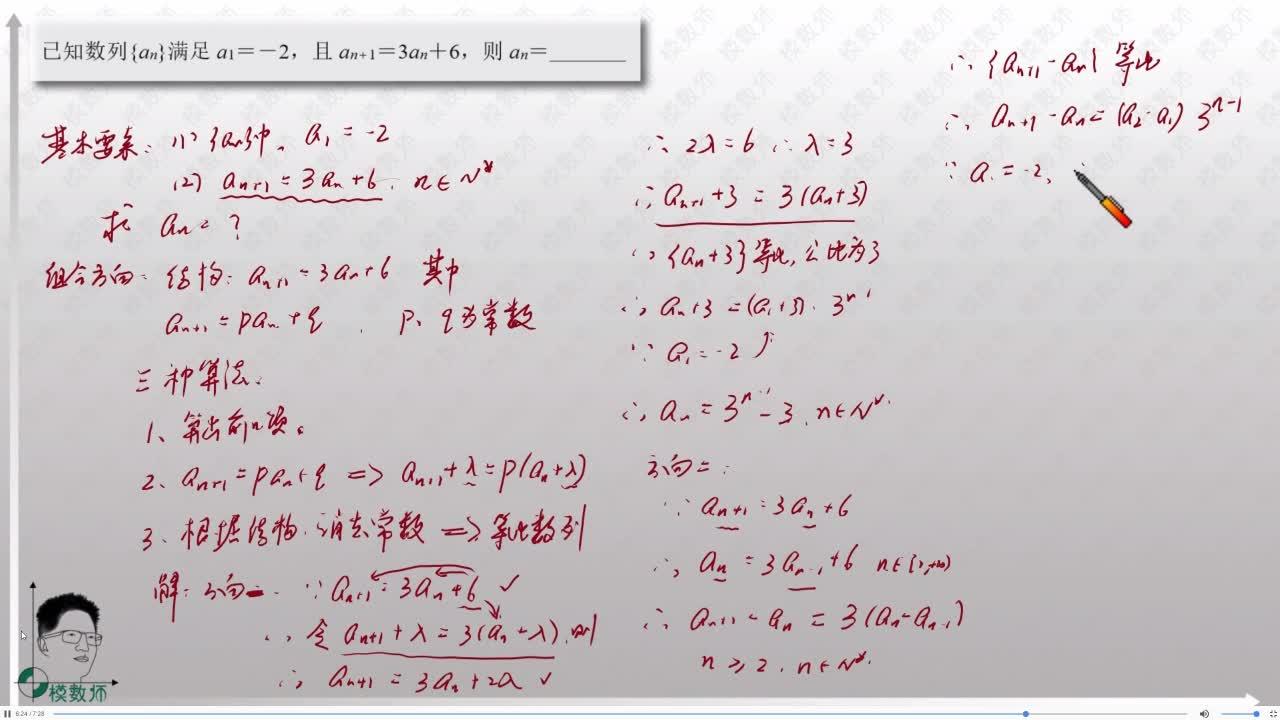 已知数列{an}满足 a1＝－2，且 an+1＝3an＋6，则 an＝________
基本要素：(1) {an}中、a1 = -2
(2) an+1 = 3an+6 . n∈N*
求 an = ?
组合方向：结构：an+1 = 3an+6 其中
an+1 = pan + q . p、q为常数
三种算法：
1、算出前n项。
2、an+1 = pan+q => an+1 + λ = p(an+λ)
3、根据结构，消去常数 => 等比数列
解：方向一. ∵ an+1 = 3an+6 ✓
∴ 令 an+1 + λ = 3(an+λ), 则
∴ an+1 = 3an+2λ ✓
∴ 2λ = 6 ∴ λ = 3
∴ an+1 + 3 = 3(an+3)
∴ {an+3} 等比, 公比为3
∴ an+3 = (a1+3)· 3^n-1
∵ a1 = -2
∴ an = 3^n-1 - 3 . n∈N*.
方向二：
∵ an+1 = 3an + 6
∴ an = 3an-1 + 6 n∈[2,+∞)
∴ an+1 - an = 3(an-an-1)
n ≥ 2 . n∈N*.
∴ {an+1 - an} 等比
∴ an+1 - an = (a2-a1) 3^n-1
∵ a1 = -2,
模数师
6:24 / 7:28